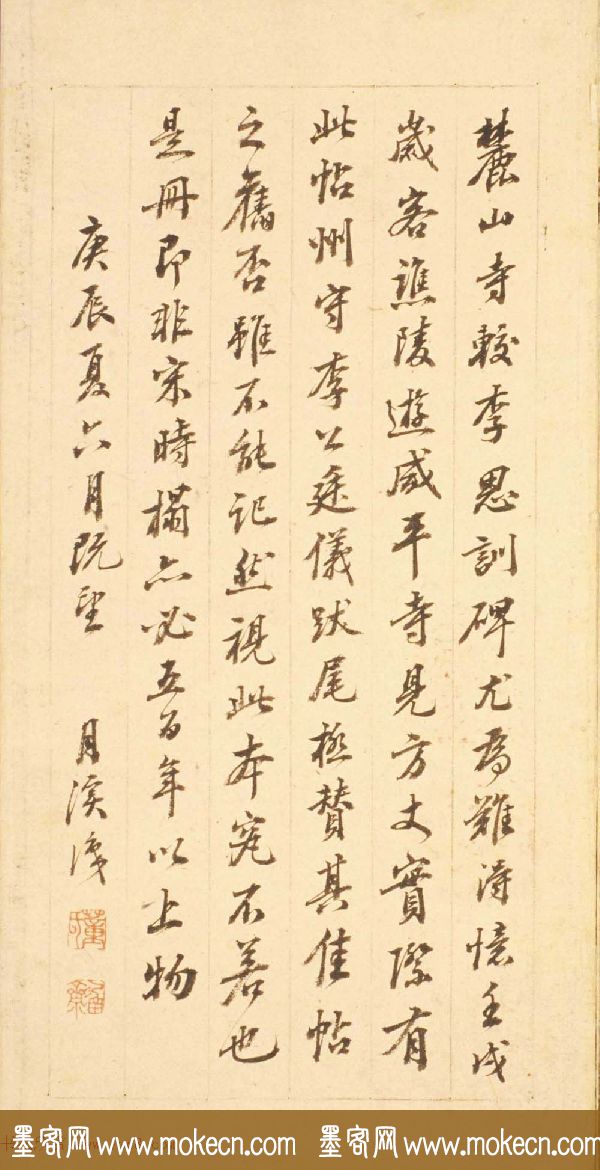 麓山寺較李思訓碑尤為難得憶壬戌
歲客譙陵遊咸平寺見方丈實際有
此帖州守李公廷儀跋尾極賛其佳帖
之舊否雖不能記然視此本宛不若也
是冊即非宋時榻亦必五百年以上物
庚辰夏六月既望 月溪
墨客网 www.mokecn.com 墨客网 www.mokecn.com